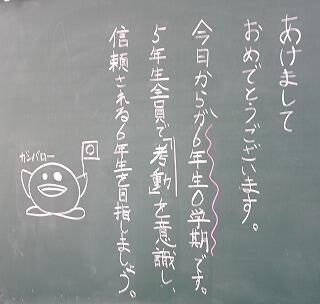 あけまして
おめでとうございます。
今日からが6年生0学期です。
5年生全員で『考動』を意識し、
信頼される6年生を目指しましょう。
ガンバロー